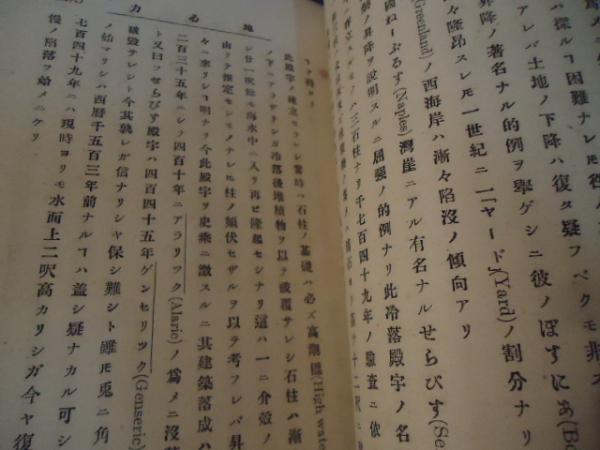 ハ樣ルコ困難ナレモ
アレバ土地ノ下降ハ復タ疑フベクモ非ズ
昇降ノ著名ナル的例ヲ擧ゲシニ彼ノぼすにあ(Bo
々隆昂スレモ一世紀ニ一「ヤード」(Yard)ノ割分ナリ
(Greenland)ノ西海岸ハ漸々陷沒ノ傾向アリ
國ねーぷるす(Naples)灣崖ニアル有名ナルせらびす(Se
ノ昇降ヲ說明スルニ屈强ノ的例ナリ此冷落殿宇ノ名
ノハ三石柱ナリ千七百四十九年ノ驗査ニ依
地心力
此殿宇ノ建立セラレシ當時ハ石柱ノ基礎ハ必ズ高潮標(High wate
ノ下ニアラザリシガ冷落後堆積物ヲ以テ被覆サレシ石柱ハ漸
シ廿一呎餘モ海水中ニ入リ再ビ隆起セシナリ這ハ一ニ介殼ノ
由リテ推定セシモノナレモ柱ノ傾伏セザルヲ以テ考フレバ昇
々ニ來リシコ明ナリ今此殿宇ヲ史乘ニ徵スルニ其建築落成ハ
二百三十五年ニシテ四百十年ニアラリック(Alaric)ノ爲メニ沒
ト又曰フせらびす殿宇ハ四百四十五年ゲンセリック(Genseric)
破毀サレシト今其孰レガ信ナリシヤ保シ難シト雖モ兎ニ角
ノ始マリシハ西曆千五百三年前ナルコハ盖シ疑ナカル可シ
七百四十九年ニハ現時ヨリモ水面上二呎高カリシガ今ヤ復
慢ノ陷落ヲ始メニケリ